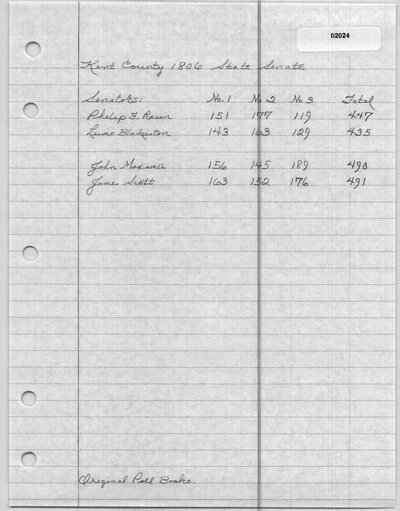 02024
Kent County 1806 State Senate
Senators: No. 1 No. 2 No. 3 Total
Philip F. Rasin 151 177 119 447
Lewis Blakiston 143 163 129 435
John Maxwell 156 145 189 490
Jame Scott 163 152 176 491
Original Poll Books.